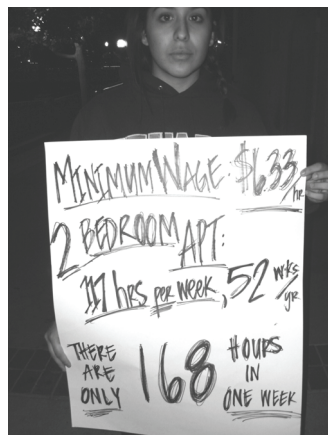 MINIMUM WAGE: $6.33/hr
2 BEDROOM APT:
117 hrs per week, 52 wks/yr
THERE ARE ONLY 168 HOURS IN ONE WEEK